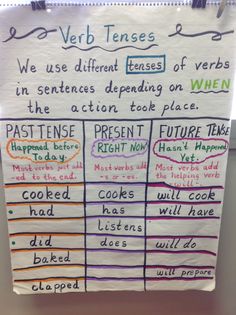 Verb Tenses
We use different tenses of verbs
in sentences depending on WHEN
the action took place.
PAST TENSE PRESENT FUTURE TENSE
Happened before Today. RIGHT NOW Hasn't Happened Yet.
Most verbs just add -ed to the end. Most verbs just add -s or -es. Most verbs add the helping verb -will-.
cooked cooks will cook
had has will have
listens
did does will do
baked
will prepare
clapped